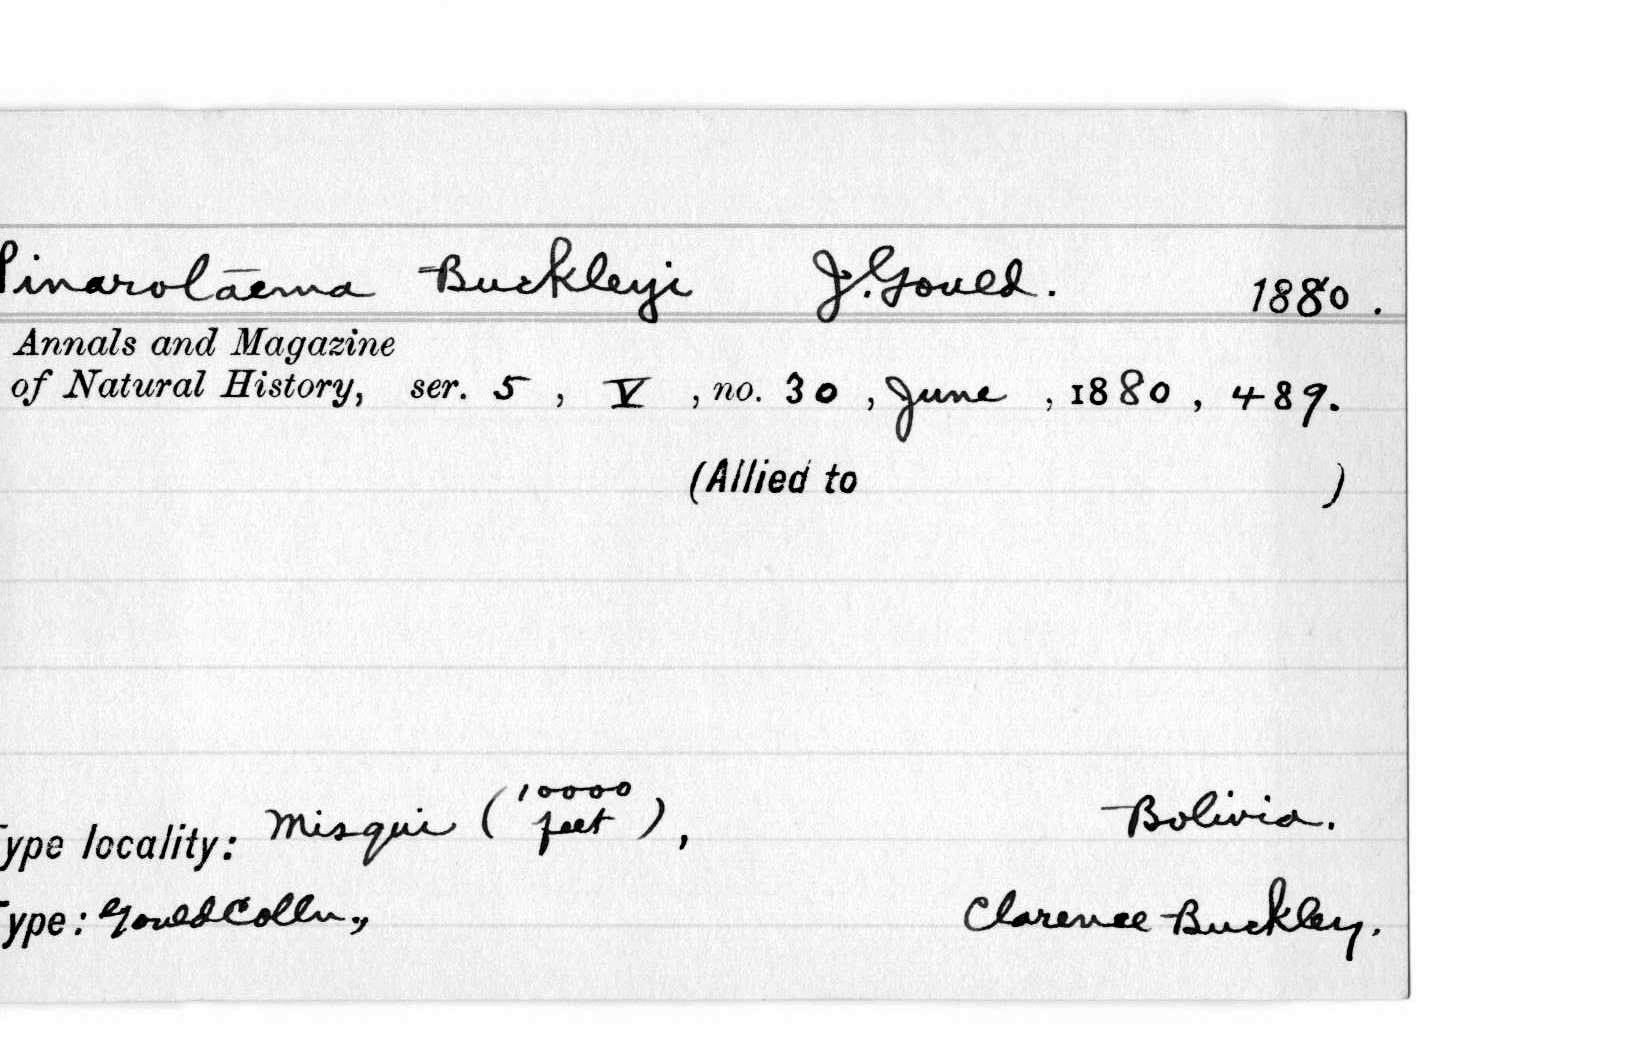 Pinarolāema Buckleyi J. Gould. 1880.
Annals and Magazine
of Natural History, ser. 5, V, no. 30, June, 1880, 489.
(Allied to )
Type locality: Misqui (10000 feet), Bolivia.
Type: Gould Colln., Clarence Buckley.